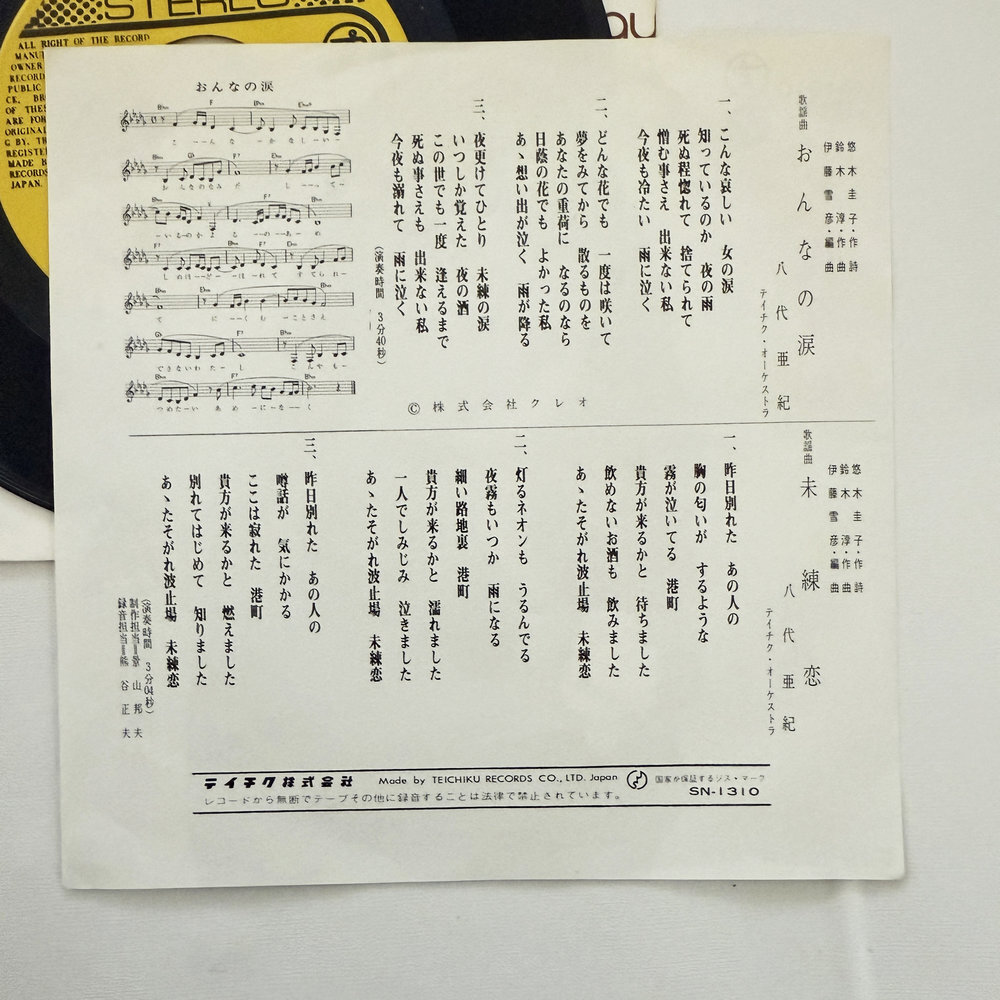 STEREO
ALL RIGHT OF THE RECORD
MANU
OWNER
RECORD
PUBLIC
CK, BR
OF THES
ARE FOR
ORIGINAL
G BY. TH
REGISTER
MADE B
RECORDS
JAPAN.
au
歌謡曲
おんなの涙
悠木圭子・作詩
鈴木淳・作曲
伊藤雪彦・編曲
八代亜紀
テイチク・オーケストラ
一、こんな哀しい 女の涙
知っているのか 夜の雨
死ぬ程惚れて 捨てられて
憎む事さえ 出来ない私
今夜も冷たい 雨に泣く
二、どんな花でも 一度は咲いて
夢をみてから 散るものを
あなたの重荷に なるのなら
日蔭の花でも よかった私
あゝ想い出が泣く 雨が降る
三、夜更けてひとり 未練の涙
いつしか覚えた 夜の酒
この世でも一度 逢えるまで
死ぬ事さえも 出来ない私
今夜も溺れて 雨に泣く
(演奏時間 3分40秒)
Ⓒ株式会社クレオ
おんなの涙
こんなかなしい
おんなのなみだ しって
いるのかよるのあめ
しぬほどほれて すてられ
て にくむことさえ
できないわたし こんやも
つめたいあめになく
歌謡曲
未練恋
悠木圭子・作詩
鈴木淳・作曲
伊藤雪彦・編曲
八代亜紀
テイチク・オーケストラ
一、昨日別れた あの人の
胸の匂いが するような
霧が泣いてる 港町
貴方が来るかと 待ちました
飲めないお酒も 飲みました
あゝたそがれ波止場 未練恋
二、灯るネオンも うるんでる
夜霧もいつか 雨になる
細い路地裏 港町
貴方が来るかと 濡れました
一人でしみじみ 泣きました
あゝたそがれ波止場 未練恋
三、昨日別れた あの人の
噂話が 気にかかる
ここは寂れた 港町
貴方が来るかと 燃えました
別れてはじめて 知りました
あゝたそがれ波止場 未練恋
(演奏時間 3分04秒)
制作担当=景山邦夫
録音担当=熊谷正夫
テイチク株式会社 Made by TEICHIKU RECORDS CO., LTD. Japan 国家が保証するジス・マーク
レコードから無断でテープその他に録音することは法律で禁止されています。 SN-1310